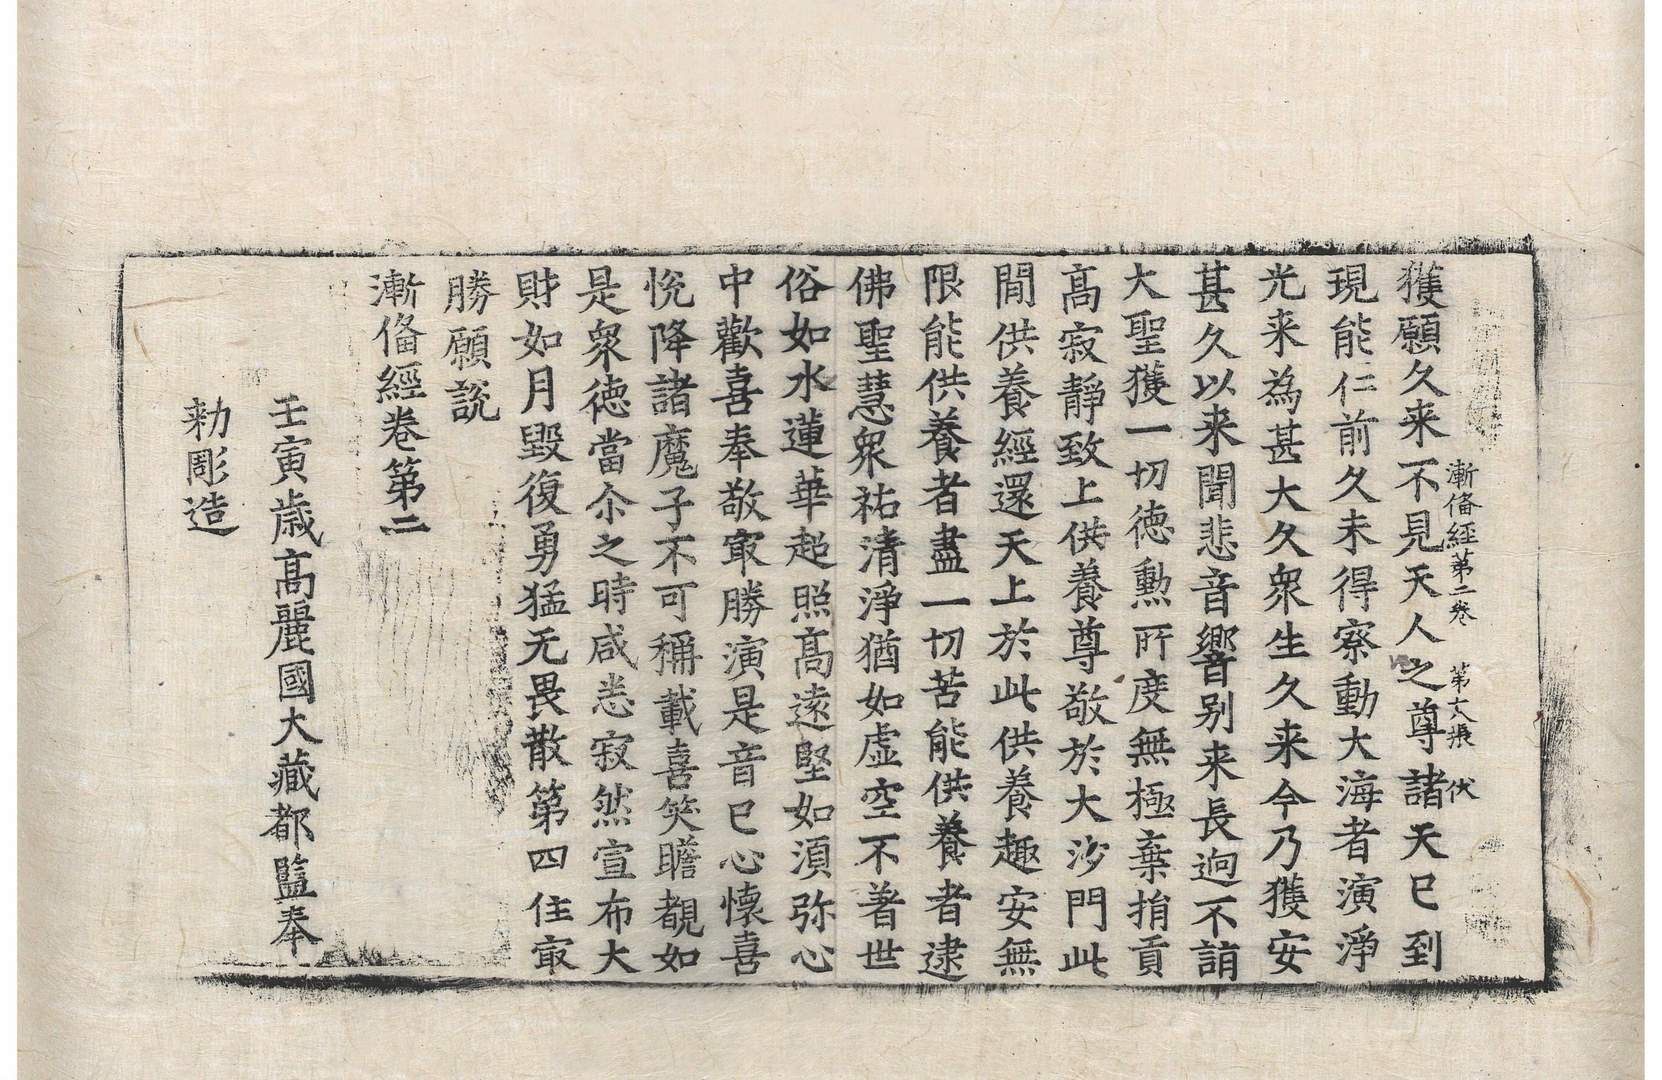 漸俻經第二卷　第十八張　伏
獲願久来不見天人之尊諸天已到
現能仁前久未得察動大海者演淨
光来為甚大久衆生久来今乃獲安
甚久以来聞悲音響别来長逈不詣
大聖獲一切徳勲所度無極棄捐貢
髙寂靜致上供養尊敬於大沙門此
閒供養經還天上於此供養趣安無
限能供養者盡一切苦能供養者逮
佛聖慧衆祐清淨猶如虚空不著世
俗如水蓮華超照髙遠堅如湏弥心
中歡喜奉敬㝡勝演是音已心懷喜
悅降諸魔子不可稱載喜笑瞻覩如
是衆徳當尒之時咸恙寂然宣布大
財如月毀復勇猛无畏散第四住㝡
勝願説
漸俻經卷第二
壬寅歳髙麗國大藏都監奉
勑彫造